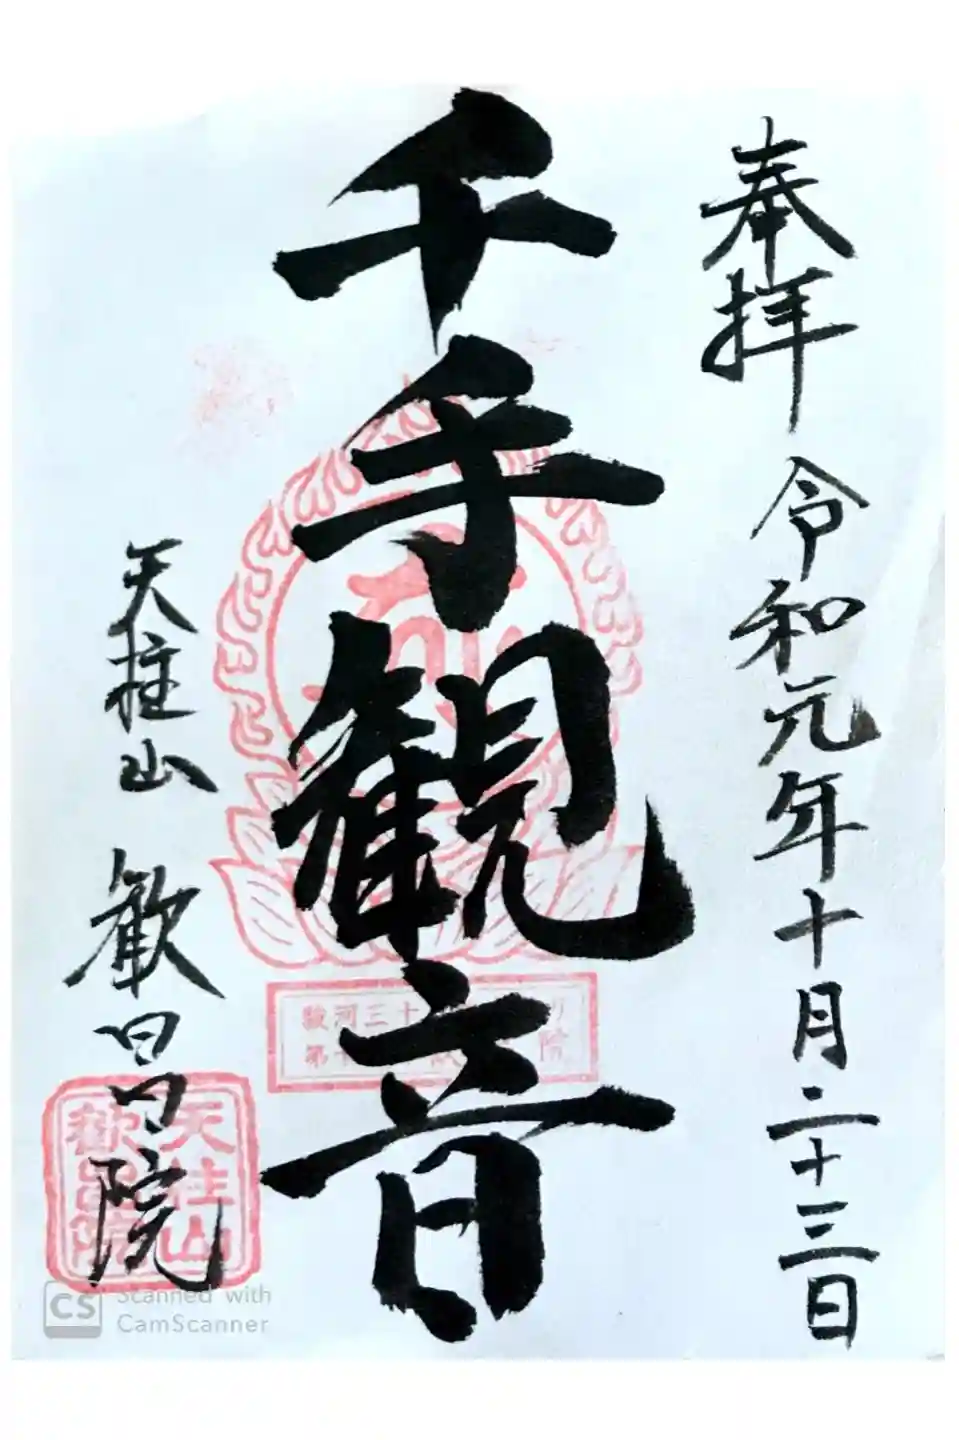 奉拝 令和元年十月二十三日
千手観音
駿河三十
第十 院
天柱山 歓昌院
天柱山
歓昌院
CS Scanned with
CamScanner